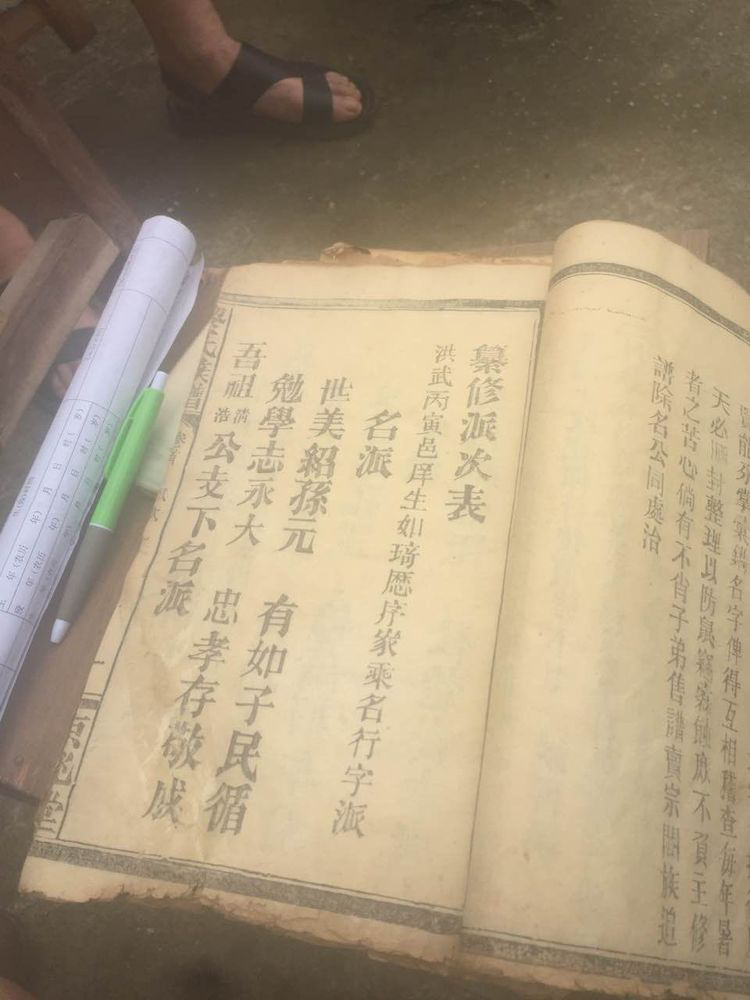 名字俾得互相稽查每年暑
天必封整理以防鼠蝕庶不負主修
者之苦心倘有不肖子弟售譜賣宗閤族追
譜除名公同處治
纂修派次表
洪武丙寅邑庠生如琦歷序家乘名行字派
名派
世美紹孫元 有如子民循
勉學志永大 忠孝存敬成
吾祖清浩公支下名派
氏族譜
京兆堂